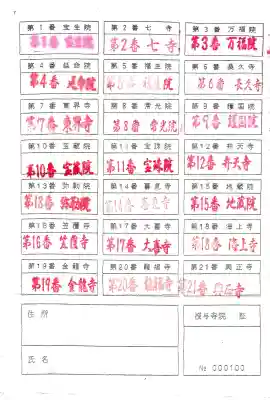 第1番 宝生院 第2番 七寺 第3番 万福院
第1番 第2番 七寺 第3番 万福院
第4番 延命院 第5番 福生院 第6番 長久寺
第4番 延命院 第5番 福生院 第6番 長久寺
第7番 東界寺 第8番 常光院 第9番 護国院
第7番 東界寺 第8番 常光院 第9番 護国院
第10番 宝蔵院 第11番 宝珠院 第12番 弁天寺
第10番 宝蔵院 第11番 宝珠院 第12番 弁天寺
第13番 弥勒院 第14番 第15番 地蔵院
第13番 弥勒院 第14番 第15番 地蔵院
第16番 笠覆寺 第17番 大喜寺 第18番 海上寺
第16番 笠覆寺 第17番 大喜寺 第18番 海上寺
第19番 金龍寺 第20番 龍福寺 第21番 興正寺
第19番 金龍寺 第20番 龍福寺 第21番
住所
氏名
授与寺院 印
№ 000100